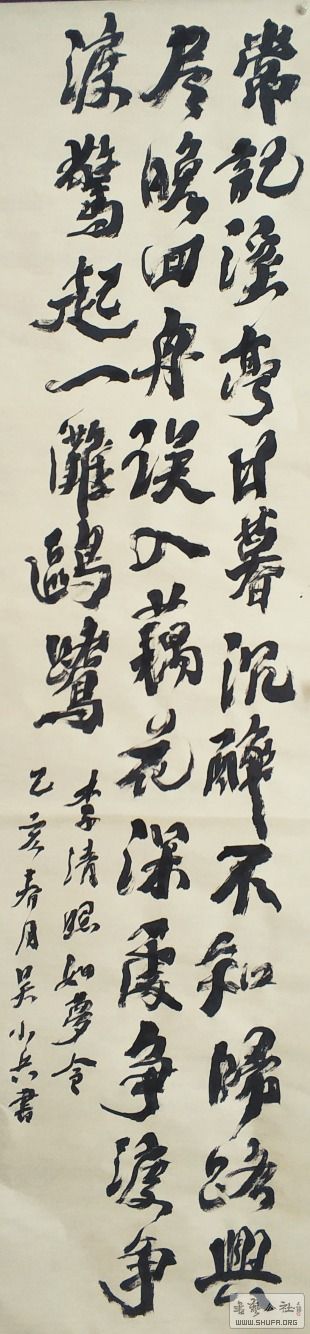 常記溪亭日暮沉醉不知歸路興
尽晚回舟误入藕花深處争渡争
渡驚起一灘鷗鷺
李清照如夢令
乙亥春月吴小兵書
書藝公社
WWW.SHUFA.ORG